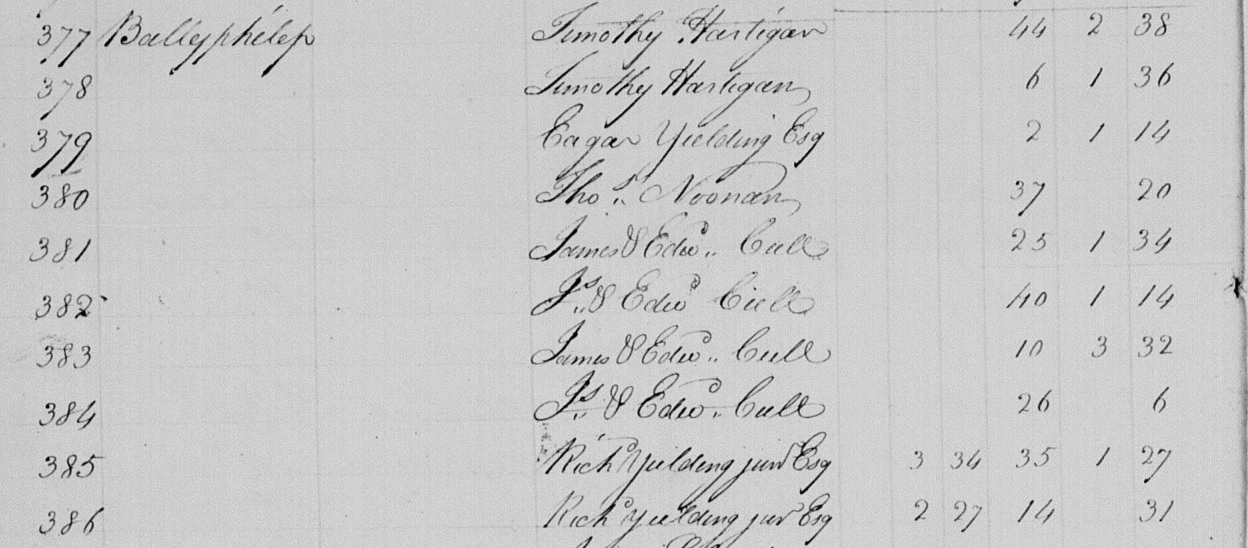 377 Ballyphilip Timothy Hartigan 44 2 38
378 Timothy Hartigan 6 1 36
379 Eagar Yielding Esq 2 1 14
380 Thos. Noonan 37 20
381 James & Edwd. Cull 25 1 34
382 Js. & Edwd Cull 40 1 14
383 James & Edwd. Cull 10 3 32
384 Js. & Edwd. Cull 26 6
385 Richd Yielding junr Esq 3 34 35 1 27
386 Richd Yielding junr Esq 2 27 14 31